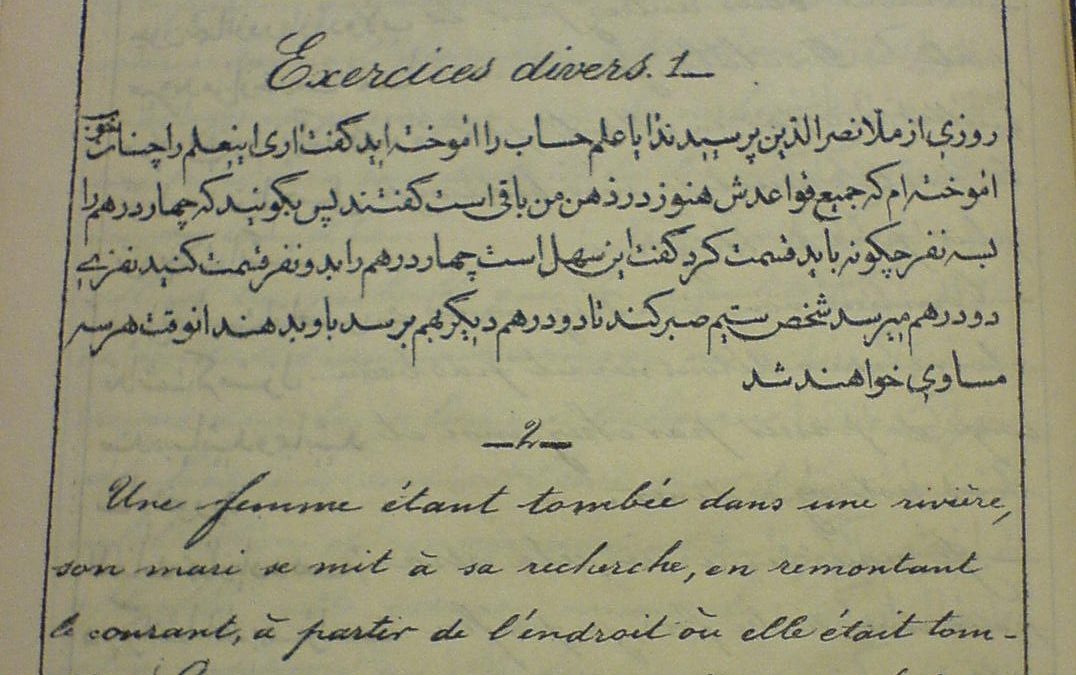 Exercices divers. 1_
روزي از ملّا نصرالدّين پرسيدند ايا علم حساب را اموخته ايد گفت اري اين علم را چنان خوب
اموخته ام كه جميع قواعدش هنوز در ذهن من باقي است گفتند پس بگوئيد كه چهار درهم را
بسه نفر چگونه بايد قسمت كرد گفت اين سهل است چهار درهم را بدو نفر قسمت كنيد نفري
دو درهم ميرسد شخص سيّم صبر كند تا دو درهم ديگر بهم برسد باو بدهند انوقت هر سه
مساوي خواهند شد
_2_
Une femme étant tombée dans une rivière,
son mari se mit à sa recherche, en remontant
le courant, à partir de l'endroit où elle était tom-